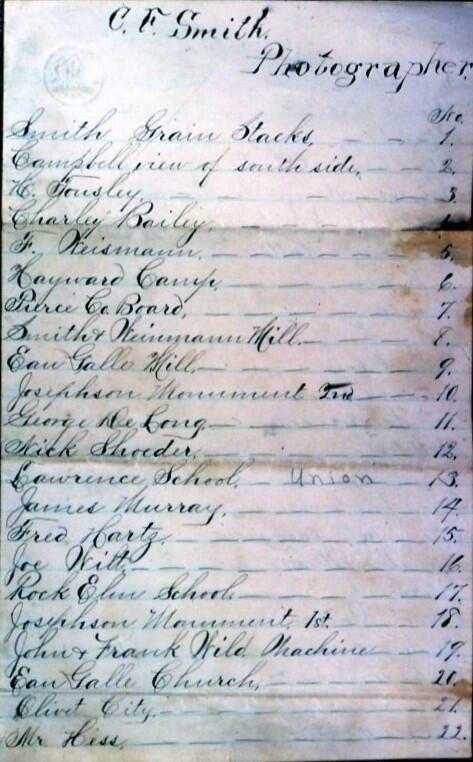 C. F. Smith.
Photographer
No.
Smith Grain Stacks, 1.
Campbell view of south side, 2.
H. Tousley 3.
Charley Bailey, 4
F. Weismann. 5.
Hayward Camp. 6.
Pierce Co. Board, 7.
Smith & Weinmann Mill. 8.
Eau Galle Mill. 9.
Josephson Monument 2nd 10.
George De Long 11.
Nick Shoeder, 12.
Lawrence School. Union 13.
James Murray, 14.
Fred Hartz. 15.
Joe Witt. 16.
Rock Elm School. 17.
Josephson Monument 1st. 18.
John & Frank Wild Machine 19.
Eau Galle Church, 20.
Olivet City. 21.
Mr. Hess, 22.